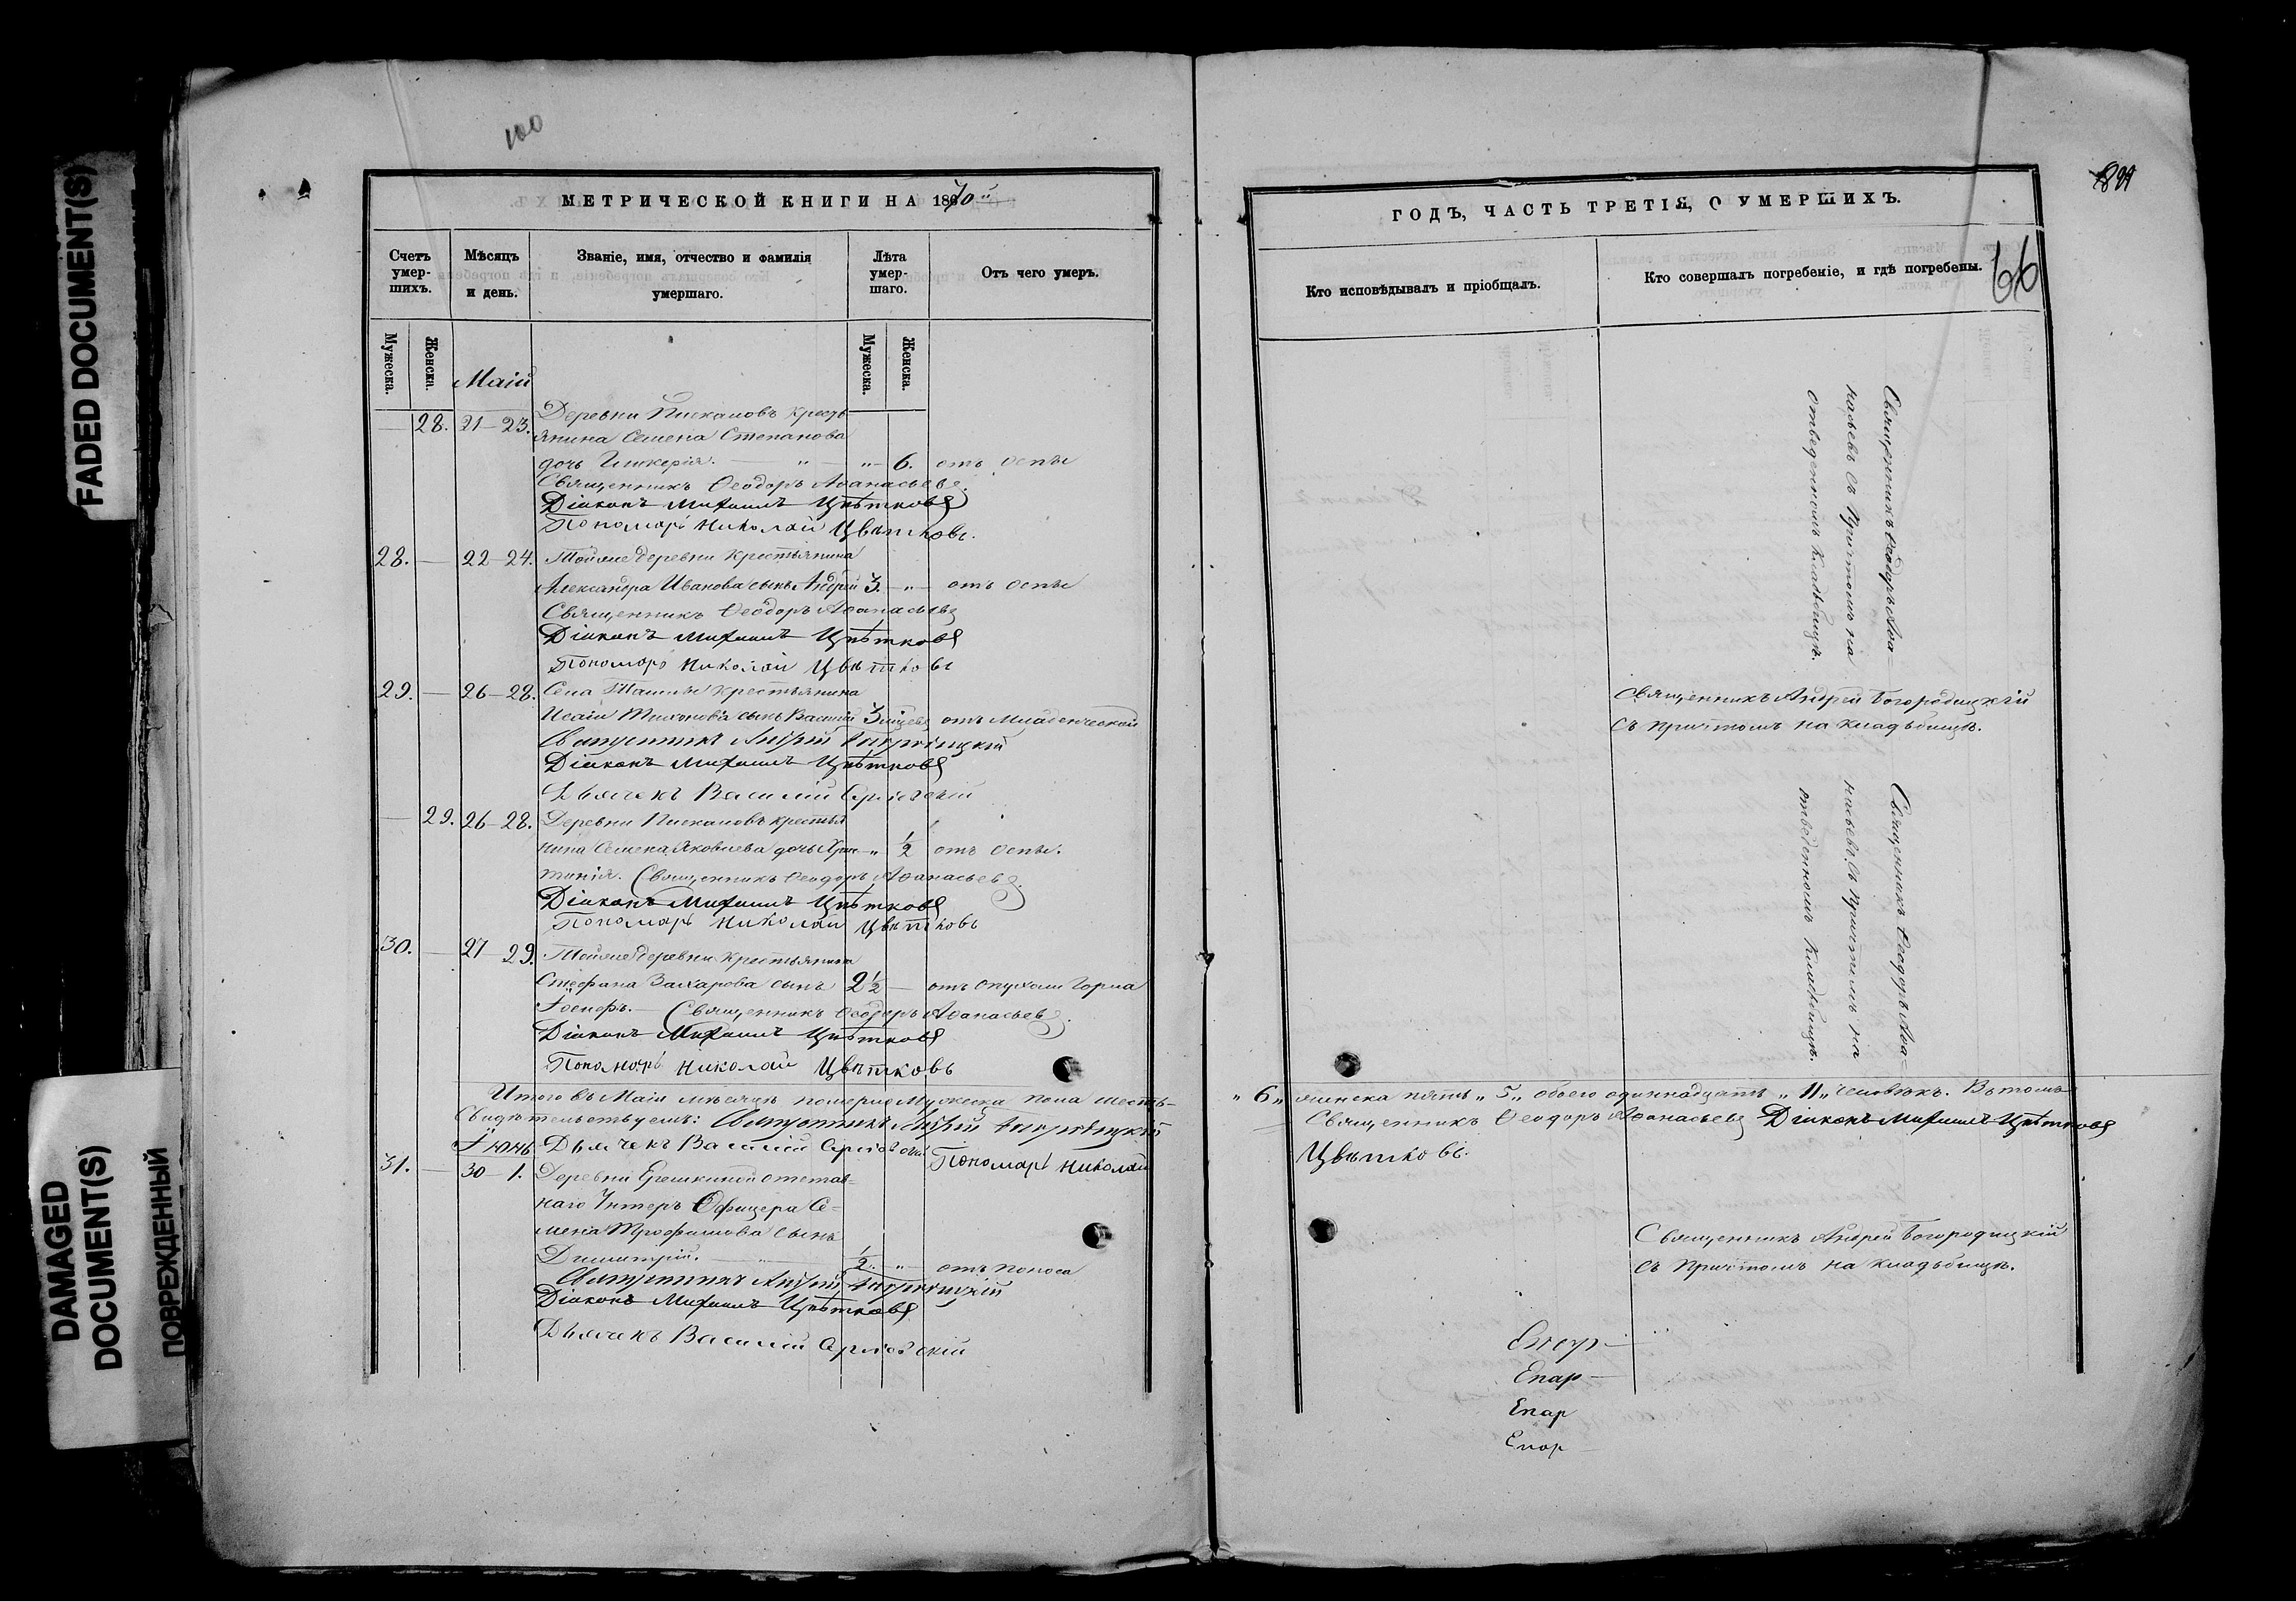 FADED DOCUMENT(S)
DAMAGED
DOCUMENT(S)
ПОВРЕЖДЕННЫЙ
100
МЕТРИЧЕСКОЙ КНИГИ НА 1870
Счетъ умер-шихъ.
Мѣсяцъ и день.
Званіе, имя, отчество и фамилія умершаго.
Лѣта умер-шаго.
Отъ чего умеръ.
Мужеска.
Женска.
Маій
Мужеска.
Женска.
28. 21–23. Деревни Пискаловъ кресть
янина Семена Степанова
дочь Гликерія. — „ — „ — 6. отъ оспы
Священникъ Ѳеодоръ Аѳанасьевъ.
Діаконъ Михаилъ Цвѣтковъ
Пономарь Николай Цвѣтковъ.
28. — 22–24. Тойже деревни крестьянина
Александра Иванова сынъ Андрей 3. — „ — отъ оспы
Священникъ Ѳеодоръ Аѳанасьевъ
Діаконъ Михаилъ Цвѣтковъ
Пономарь Николай Цвѣтковъ
29. — 26–28. Села крестьянина
Исаіи сынъ Василій 3 отъ младенческой
Священникъ Андрей Богородицкій
Діаконъ Михаилъ Цвѣтковъ
Дьячекъ Василій
— 29. 26–28. Деревни Пискаловъ крестья
нина Семена Яковлева дочь Хрис- „ 1/2 отъ оспы.
тинія. Священникъ Ѳеодоръ Аѳанасьевъ.
Діаконъ Михаилъ Цвѣтковъ
Пономарь Николай Цвѣтковъ
30. — 27 29. Тойже деревни крестьянина
Стефана Захарова сынъ 2 1/2 — отъ опухоли горла
Іосифъ. — Священникъ Ѳеодоръ Аѳанасьевъ.
Діаконъ Михаилъ Цвѣтковъ
Пономарь Николай Цвѣтковъ
Итого въ Маіи мѣсяцѣ померло Мужеска пола шесть-
Свидѣтельствуемъ: Священникъ Андрей Богородицкій
Іюнь Дьячекъ Василій Пономарь Николай
31. — 30–1. Деревни Ерешкиной отстав-
наго Унтеръ Офицера Се-
мена Трофимова сынъ
Димитрій. — 1/2. „ — отъ поноса
Священникъ Андрей Богородицкій
Діаконъ Михаилъ Цвѣтковъ
Дьячекъ Василій
ГОДЪ, ЧАСТЬ ТРЕТІЯ, О УМЕРШИХЪ.
Кто исповѣдывалъ и пріобщалъ.
Кто совершалъ погребеніе, и гдѣ погребены.
66
Священникъ Ѳеодоръ Аѳа=
насьевъ съ Причтомъ на
отведенномъ кладбищѣ.
Священникъ Андрей Богородицкій
съ причтомъ на кладьбищѣ.
Священникъ Ѳеодоръ Аѳа=
насьевъ съ причтомъ на
отведенномъ кладбищѣ.
„ 6 „ женска пять „ 5 „ обоего одиннадцать „ 11 „ человѣкъ. Въ томъ
Священникъ Ѳеодоръ Аѳанасьевъ Діаконъ Михаилъ Цвѣтковъ
Цвѣтковъ.
Священникъ Андрей Богородицкій
съ Причтомъ на кладьбищѣ.
Епар —
Епар